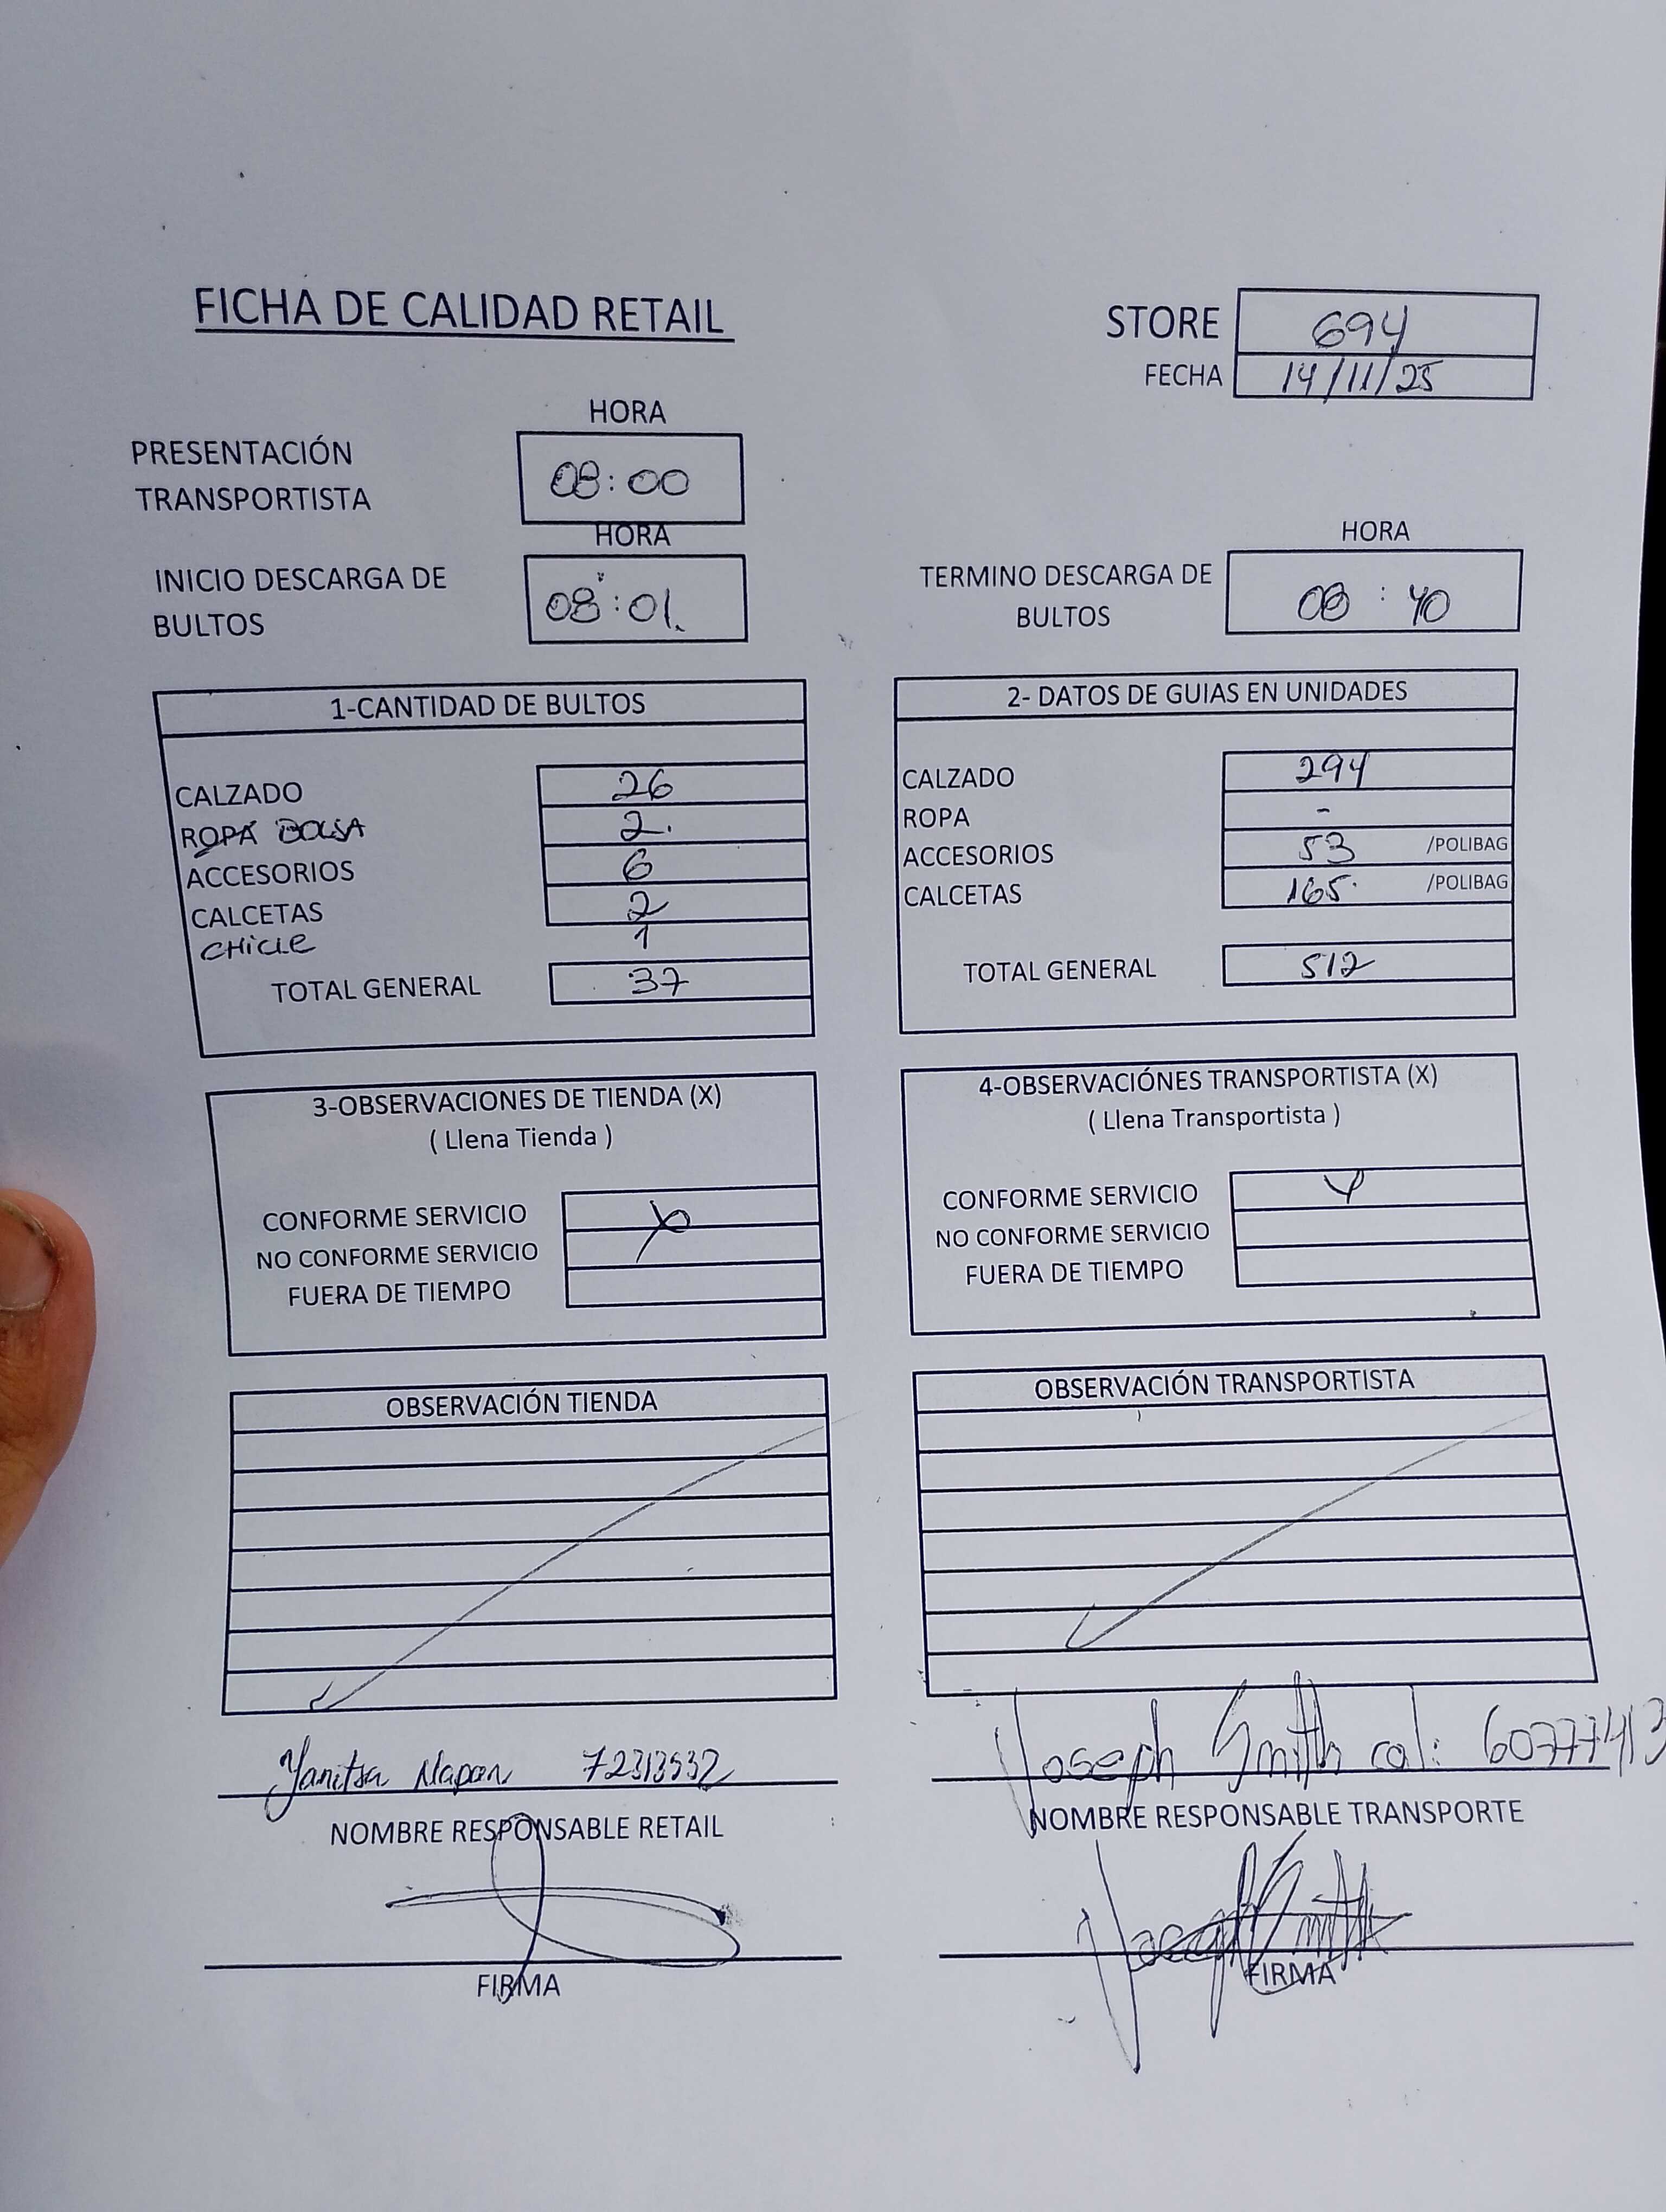 FICHA DE CALIDAD RETAIL
STORE 694
FECHA 14/11/25
HORA
PRESENTACIÓN TRANSPORTISTA 08:00
HORA
INICIO DESCARGA DE BULTOS 08:01.
HORA
TERMINO DESCARGA DE BULTOS 08:40
1-CANTIDAD DE BULTOS
CALZADO 26
ROPA BOLSA 2.
ACCESORIOS 6
CALCETAS 2
CHICLE 1
TOTAL GENERAL 37
2- DATOS DE GUIAS EN UNIDADES
CALZADO 294
ROPA -
ACCESORIOS 53 /POLIBAG
CALCETAS 165. /POLIBAG
TOTAL GENERAL 512
3-OBSERVACIONES DE TIENDA (X)
( Llena Tienda )
CONFORME SERVICIO X
NO CONFORME SERVICIO
FUERA DE TIEMPO
4-OBSERVACIÓNES TRANSPORTISTA (X)
( Llena Transportista )
CONFORME SERVICIO
NO CONFORME SERVICIO
FUERA DE TIEMPO
OBSERVACIÓN TIENDA
OBSERVACIÓN TRANSPORTISTA
Yanitsa Napan 72313532
NOMBRE RESPONSABLE RETAIL
FIRMA
Joseph Smith cal: 60777413
NOMBRE RESPONSABLE TRANSPORTE
Joseph Smith
FIRMA